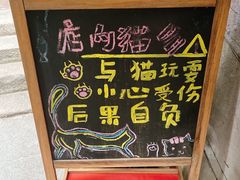 店内猫凶
与猫玩耍
小心受伤
后果自负